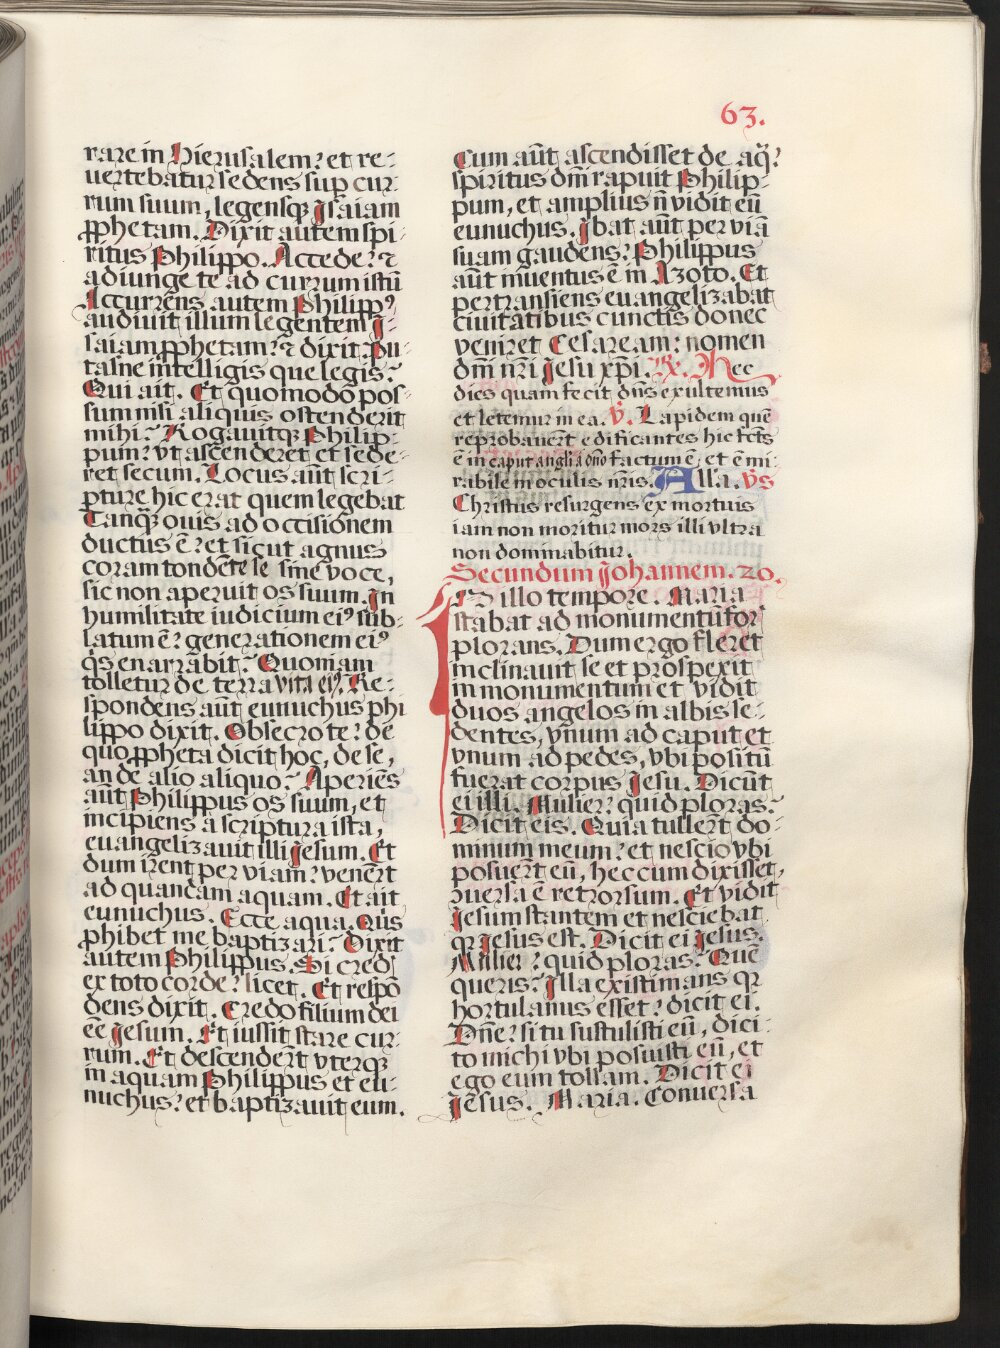 63.
rare in Hierusalem: et re-
uertebatur sedens sup cur-
rum suum, legensqꝫ Isaiam
ꝓphetam. Dixit autem spi-
ritus Philippo. Accede: ⁊
adiunge te ad currum istũ
Accurrens autem Philippꝰ
audiuit illum legentem I-
saiam ꝓphetam: ⁊ dixit. Pu-
tasne intelligis que legis?
Qui ait. Et quomodo pos-
sum nisi aliquis ostenderit
mihi? Rogauitqꝫ Philip-
pum: vt ascenderet et sede-
ret secum. Locus aũt scri-
pture hic erat quem legebat
Tanqꝫ ouis ad occisionem
ductus ẽ: et sicut agnus
coram tondẽte se sine voce,
sic non aperuit os suum. In
humilitate iudicium eiꝰ sub-
latum ẽ: generationem eiꝰ
q̃s enarrabit? Quoniam
tolletur de terra vita eiꝰ. Re-
spondens aũt eunuchus phi
lippo dixit. Obsecro te: de
quo ꝓpheta dicit hoc, de se,
an de alio aliquo? Aperiẽs
aũt Philippus os suum, et
incipiens a scriptura ista,
euangelizauit illi Iesum. Et
dum irent per viam: venerт̃
ad quandam aquam. Et ait
eunuchus. Ecce aqua. Q̃is
ꝓhibet me baptizari? Dixit
autem Philippus. Si credis
ex toto corde: licet. Et respõ
dens dixit. Credo filium dei
eẽ Iesum. Et iussit stare cur-
rum. Et descendert̃ vterqꝫ
in aquam Philippus et eu-
nuchus: et baptizauit eum.
Cum aũt ascendisset de aq̃:
spiritus dñi rapuit Philip-
pum, et amplius ñ vidit eũ
eunuchus. Ibat aũt per viã
suam gaudens: Philippus
aũt inuentus ẽ in Azoto. Et
pertransiens euangelizabat
ciuitatibus cunctis donec
veniret Cesaream: nomen
dñi nr̃i Jesu xp̃i. ℟. Hec
dies quam fecit dñs exultemus
et letemur in ea. ℣. Lapidem quẽ
reprobauerт̃ edificantes hic fct̃s
ẽ in caput anguli a dño factum ẽ, et ẽ mi
rabile in oculis nr̃is. Alla. vs
Christus resurgens ex mortuis
iam non moritur mors illi vltra
non dominabitur.
Secundum Johannem. 20.
In illo tempore. Maria
stabat ad monumentũ for
plorans. Dum ergo fleret
inclinauit se et prospexit
in monumentum et vidit
duos angelos in albis se-
dentes, vnum ad caput et
vnum ad pedes, vbi positũ
fuerat corpus Jesu. Dicũt
ei illi. Mulier: quid ploras?
Dicit eis. Quia tulert̃ do-
minum meum: et nescio vbi
posuert̃ eũ, hec cum dixisset,
ↄuersa ẽ retrorsum. Et vidit
Jesum stantem et nesciebat
qꝛ Jesus est. Dicit ei Jesus.
Mulier: quid ploras? Quẽ
queris? Illa existimans qꝛ
hortulanus esset: dicit ei.
Dñe: si tu sustulisti eũ, dici-
to michi vbi posuisti eũ, et
ego eum tollam. Dicit ei
Jesus. Maria. Conuersa